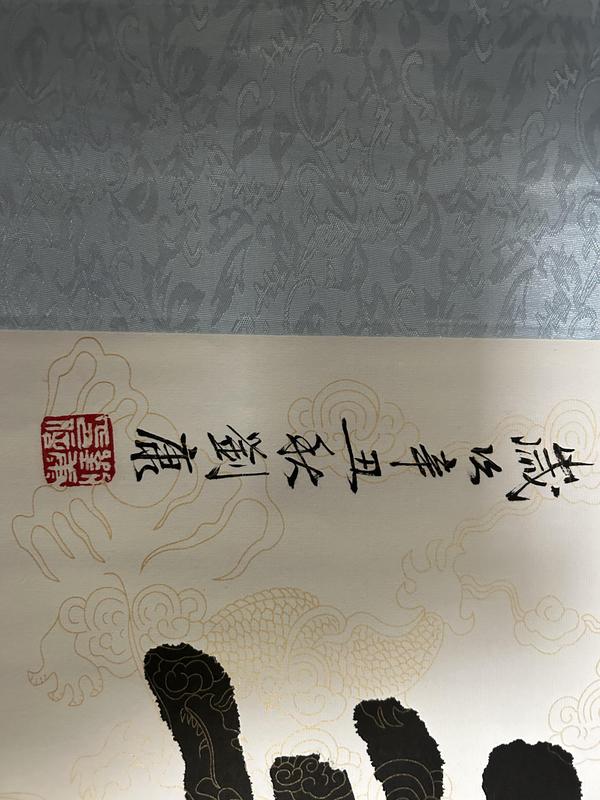 歲次辛丑秋劉康